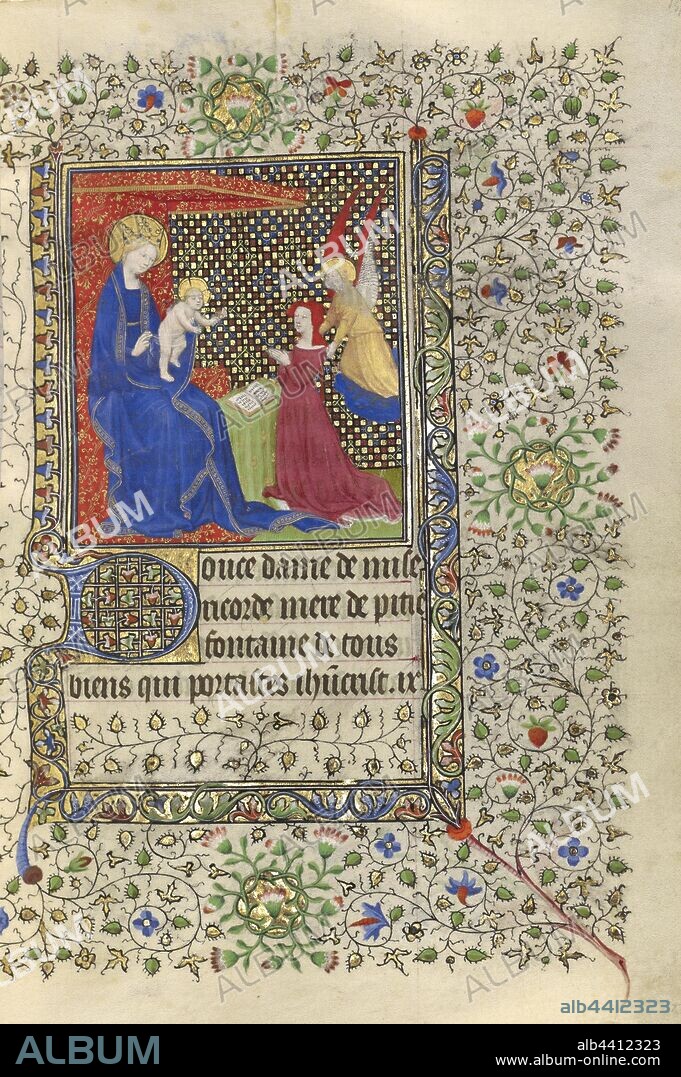 Douce dame de mise
ricorde mere de pitie
fontaine de tous
biens qui portastes ihucrist. ix
alb4412323
ALBUM
alb4412323
www.album-online.com